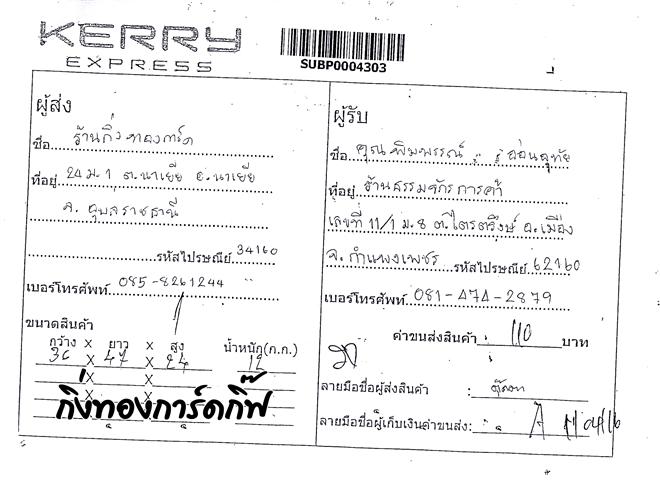 KERRY
EXPRESS
SUBP0004303
ผู้ส่ง
ชื่อ ร้านกิ่งทองการ์ด
ที่อยู่ 24 ม.1 ต.นาเยีย อ.นาเยีย
จ.อุบลราชธานี
รหัสไปรษณีย์ 34160
เบอร์โทรศัพท์ 085-8261244
ขนาดสินค้า
กว้าง x ยาว x สูง น้ำหนัก(ก.ก.)
36 x 47 x 24 12
x x
x x
กิ่งทองการ์ดกิ๊ฟ
ผู้รับ
ชื่อ คุณพิมพรรณ์ อ่อนอุทัย
ที่อยู่ ร้านธรรมจักรการค้า
เลขที่ 11/1 ม.8 ต.ไตรตรึงษ์ อ.เมือง
จ.กำแพงเพชร รหัสไปรษณีย์ 62160
เบอร์โทรศัพท์ 081-474-2879
ค่าขนส่งสินค้า 110 บาท
ลายมือชื่อผู้ส่งสินค้า :
ลายมือชื่อผู้เก็บเงินค่าขนส่ง: